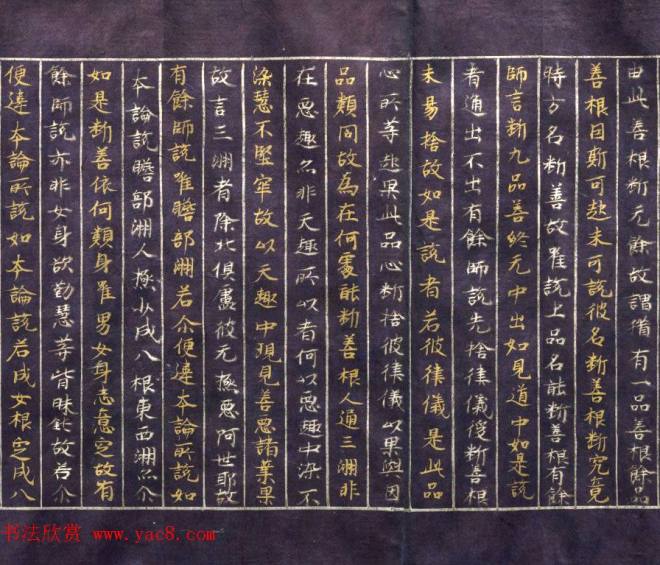 由此善根断无余故謂猶有一品善根餘品
善根因斯可起未可説彼名断善根断究竟
時方名断善故唯説上品名能断善根有餘
師言断九品善終无中出如見道中如是説
者通出不出有餘師説先捨律儀後断善根
未易捨故如是説者若彼律儀是此品
心所等起果此品心断捨彼律儀以果與因
品類同故為在何處能断善根人通三洲非
在惡趣名非天趣所以者何以惡趣中染不
染慧不堅牢故以天趣中現見善惡諸業果
故言三洲者除北俱盧彼无極惡阿世耶故
有餘師説唯贍部洲若尒便違本論所説如
本論説贍部洲人極少成八根東西洲亦尒
如是断善依何類身唯男女身志意定故有
餘師説亦非女身欲勤慧等皆昧鈍故若尒
便違本論所説如本論説若成女根定成八
书法欣赏 www.yac8.com